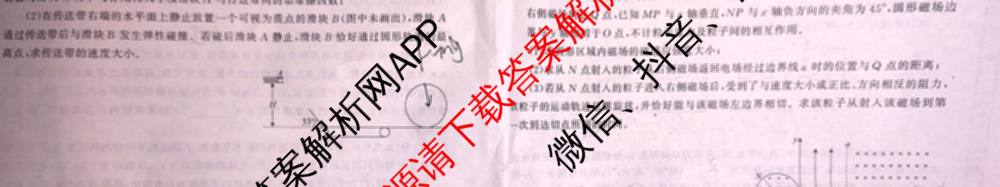 (2)在传送带右端的水平面上静止放置一个可视为质点的滑块B(图中未画出),滑块A
通过传送带后与滑块B发生弹性碰撞,若碰后滑块A静止,滑块B恰好通过圆形
高点,求传送带的速度大小。
H
53°
答案解析网APP
源请下载答案解析
微信、抖音
右侧 点,已知MP与 轴垂直,NP与x轴负方向的夹角为45°,圆形磁场边
于O点,不计 及粒子间的相互作用。
区域内磁场的 大小;
(2)求从N点射入的粒 磁场返回电场经过边界线a时的位置与Q点的距离;
(3)若从N点射入的粒子进入右侧磁场后,受到了与速度大小成正比、方向相反的阻力,
该粒子的运动轨迹 ,并恰好能与该磁场左边界相切。求该粒子从射入该磁场到第
一次到达切点
y
a
N